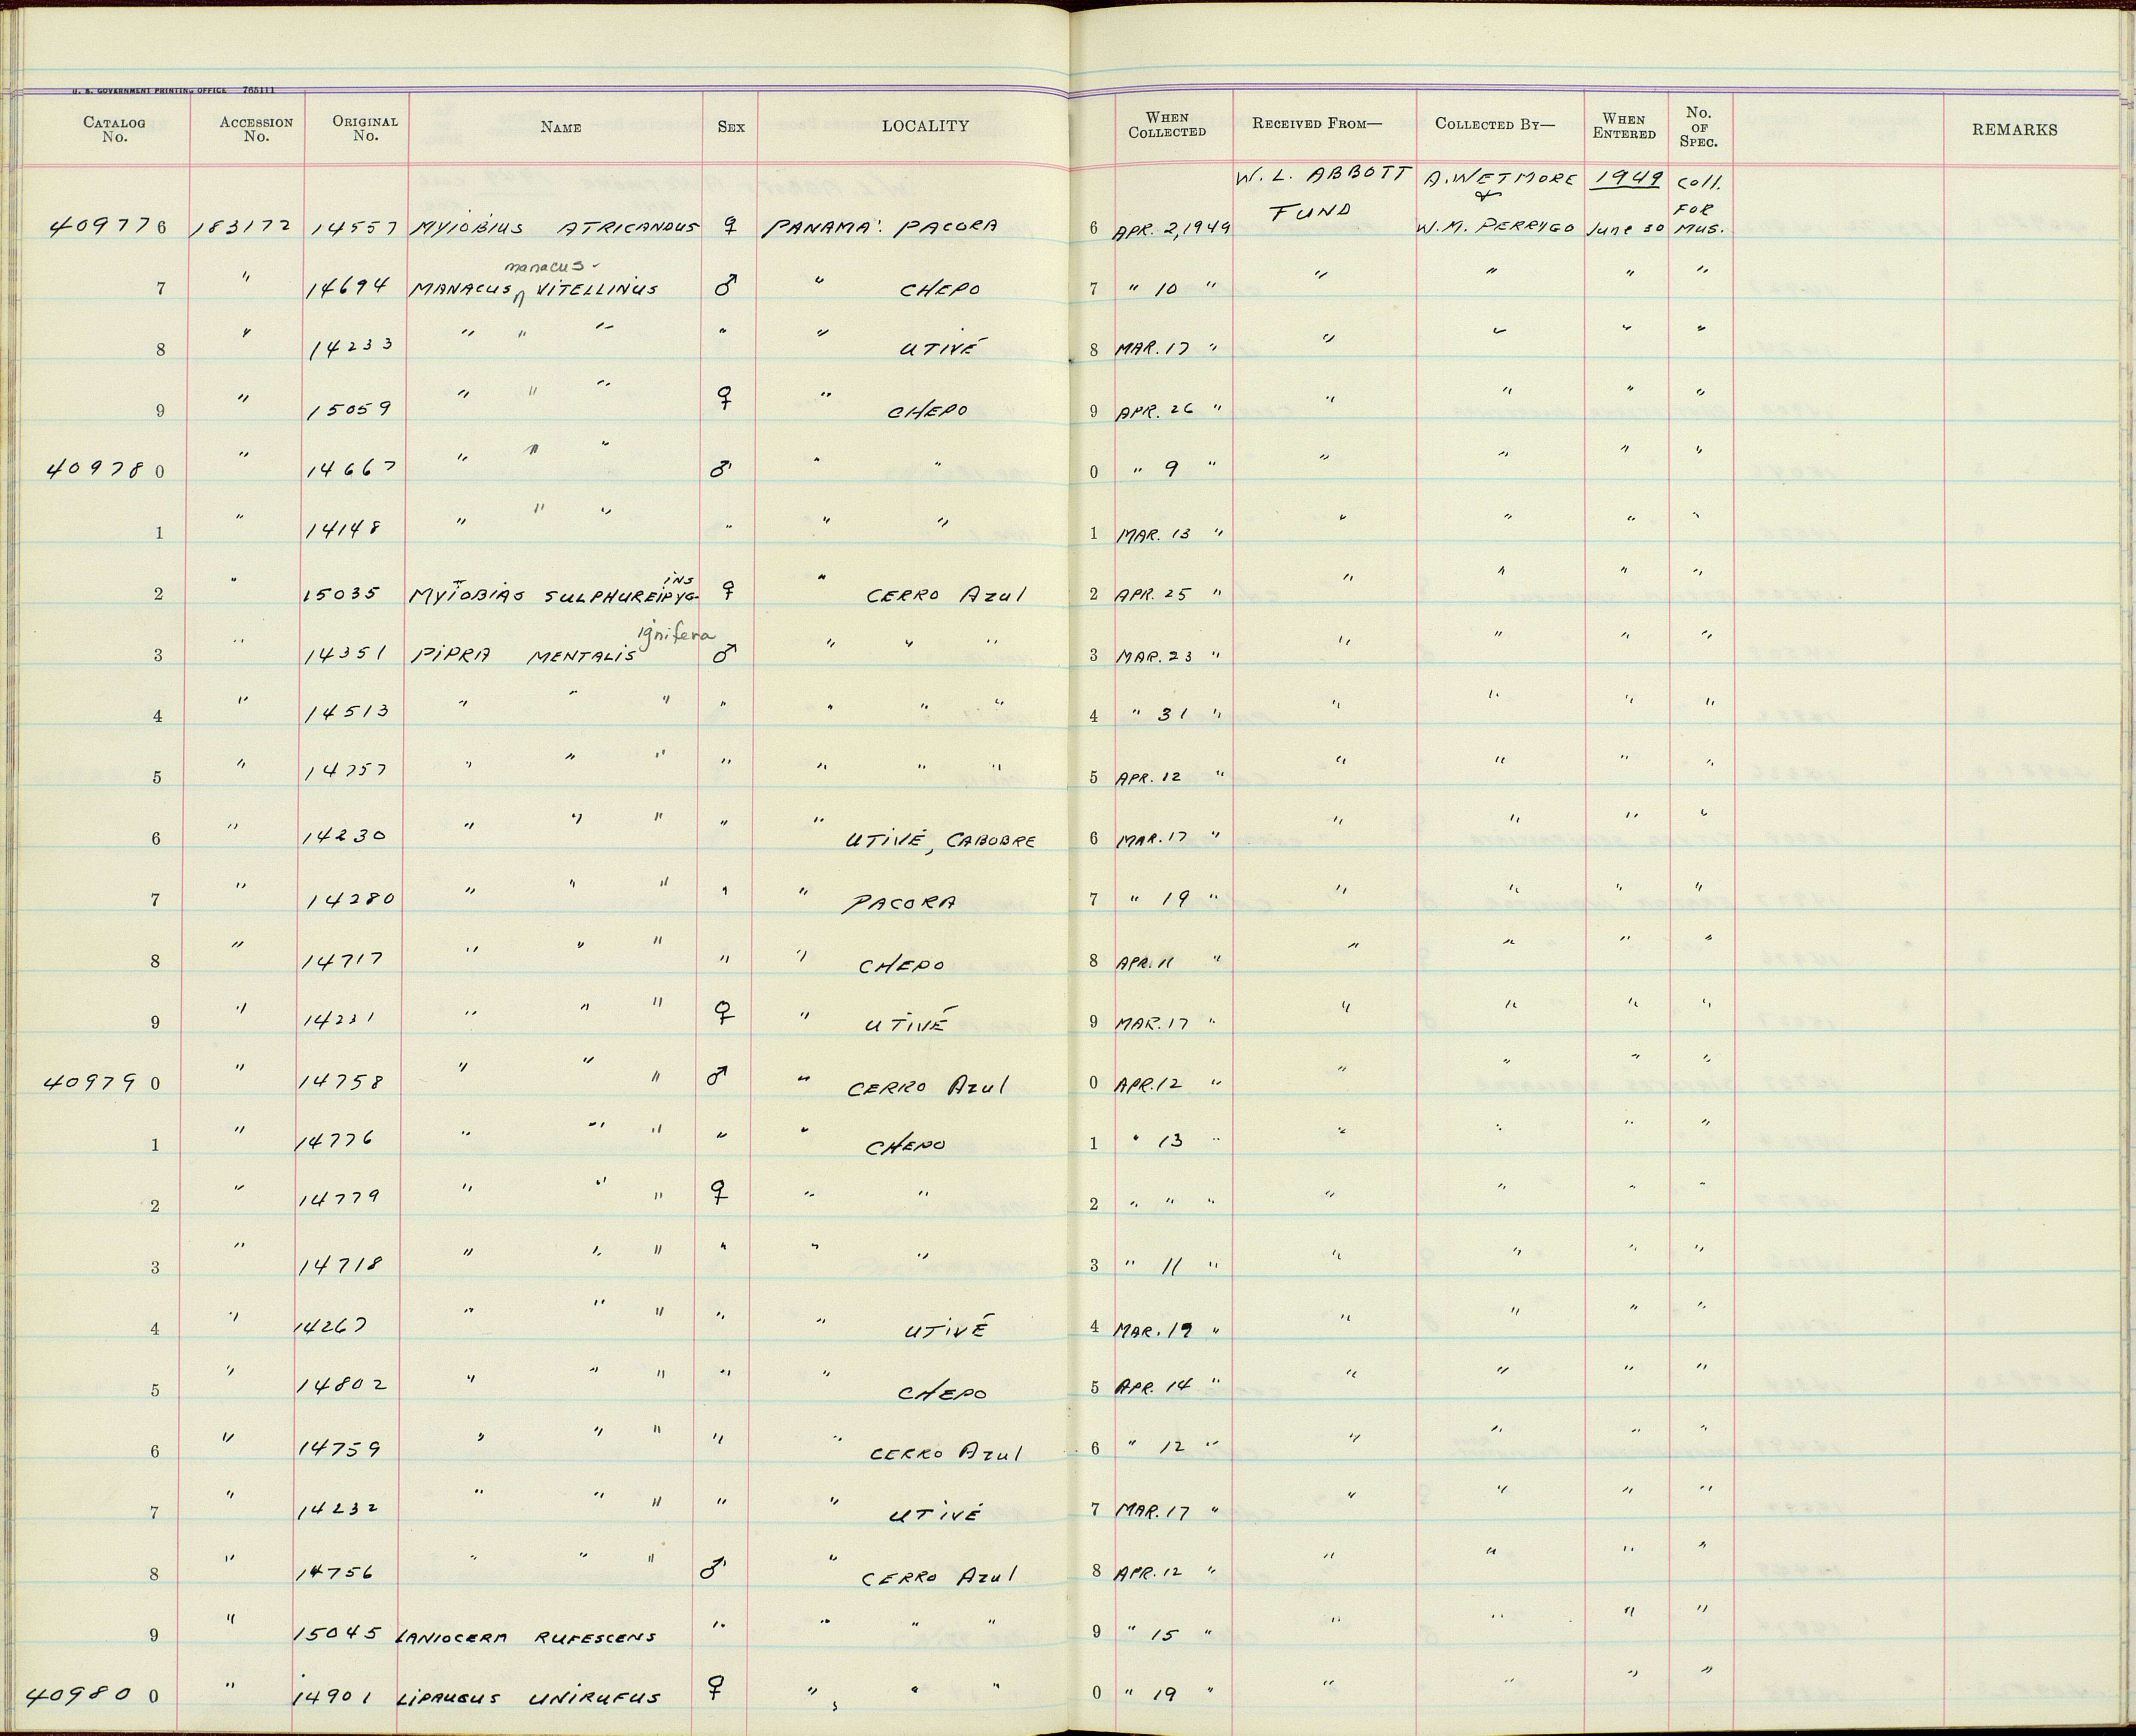 U. S. GOVERNMENT PRINTING OFFICE 765111
CATALOG No. ACCESSION No. ORIGINAL No. NAME SEX LOCALITY WHEN COLLECTED RECEIVED FROM— COLLECTED BY— WHEN ENTERED No. OF SPEC. REMARKS
W. L. ABBOTT A. WETMORE 1949 Coll.
FUND & FOR
409776 183172 14557 MYIOBIUS ATRICAUDUS ♀ PANAMA: PACORA 6 APR. 2, 1949 W.M. PERRYGO June 30 MUS.
manacus
7 " 14694 MANACUS ^ VITELLINUS ♂ " CHEPO 7 " 10 " " " " "
8 " 14233 " " " " " UTIVÉ 8 MAR. 17 " " " " "
9 " 15059 " " " ♀ " CHEPO 9 APR. 26 " " " " "
409780 " 14667 " " " ♂ " " 0 " 9 " " " " "
1 " 14148 " " " " " " 1 MAR. 13 " " " " "
ins
2 " 15035 MYIOBIAS SULPHUREIPYG- ♀ " CERRO Azul 2 APR. 25 " " " " "
ignifera
3 " 14351 PIPRA MENTALIS ♂ " " " 3 MAR. 23 " " " " "
4 " 14513 " " " " " " " 4 " 31 " " " " "
5 " 14757 " " " " " " " 5 APR. 12 " " " " "
6 " 14230 " " " " " UTIVÉ, CABOBRE 6 MAR. 17 " " " " "
7 " 14280 " " " " " PACORA 7 " 19 " " " " "
8 " 14717 " " " " " CHEPO 8 APR. 11 " " " " "
9 " 14231 " " " ♀ " UTIVÉ 9 MAR. 17 " " " " "
409790 " 14758 " " " ♂ " CERRO Azul 0 APR. 12 " " " " "
1 " 14776 " " " " " CHEPO 1 " 13 " " " " "
2 " 14779 " " " ♀ " " 2 " " " " " " "
3 " 14718 " " " " " " 3 " 11 " " " " "
4 " 14267 " " " " " UTIVÉ 4 MAR. 19 " " " " "
5 " 14802 " " " " " CHEPO 5 APR. 14 " " " " "
6 " 14759 " " " " " CERRO Azul 6 " 12 " " " " "
7 " 14232 " " " " " UTIVÉ 7 MAR. 17 " " " " "
8 " 14756 " " " ♂ " CERRO Azul 8 APR. 12 " " " " "
9 " 15045 LANIOCERA RUFESCENS " " " " 9 " 15 " " " " "
409800 " 14901 LIPAUGUS UNIRUFUS ♀ " " " 0 " 19 " " " " "